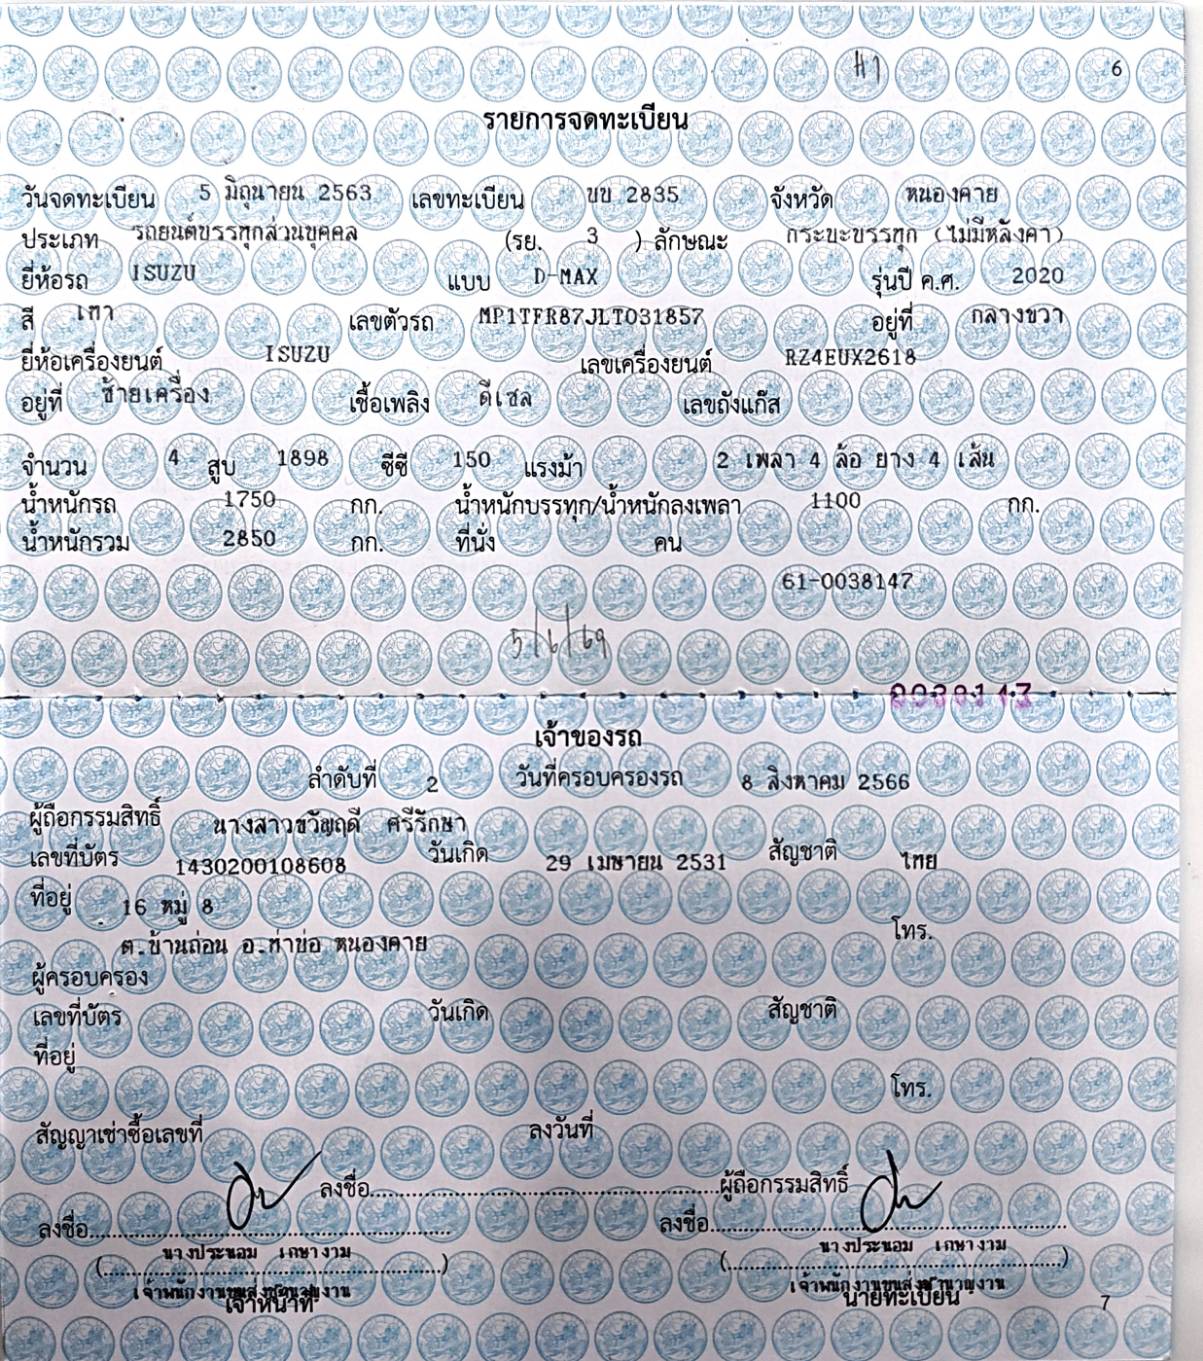 H1 6
รายการจดทะเบียน
วันจดทะเบียน 5 มิถุนายน 2563 เลขทะเบียน บบ 2835 จังหวัด หนองคาย
ประเภท รถยนต์บรรทุกส่วนบุคคล (รย. 3 ) ลักษณะ กระบะบรรทุก (ไม่มีหลังคา)
ยี่ห้อรถ ISUZU แบบ D-MAX รุ่นปี ค.ศ. 2020
สี เทา เลขตัวรถ MP1TFR87JLT031857 อยู่ที่ กลางขวา
ยี่ห้อเครื่องยนต์ ISUZU เลขเครื่องยนต์ RZ4EUX2618
อยู่ที่ ซ้ายเครื่อง เชื้อเพลิง ดีเซล เลขถังแก๊ส
จำนวน 4 สูบ 1898 ซีซี 150 แรงม้า 2 เพลา 4 ล้อ ยาง 4 เส้น
น้ำหนักรถ 1750 กก. น้ำหนักบรรทุก/น้ำหนักลงเพลา 1100 กก.
น้ำหนักรวม 2850 กก. ที่นั่ง คน
61-0038147
5/6/69
เจ้าของรถ
ลำดับที่ 2 วันที่ครอบครองรถ 8 สิงหาคม 2566
ผู้ถือกรรมสิทธิ์ นางสาวขวัญฤดี ศรีรักษา
เลขที่บัตร 1430200108608 วันเกิด 29 เมษายน 2531 สัญชาติ ไทย
ที่อยู่ 16 หมู่ 8
โทร.
ต.บ้านถ่อน อ.ท่าบ่อ หนองคาย
ผู้ครอบครอง
เลขที่บัตร วันเกิด สัญชาติ
ที่อยู่
โทร.
สัญญาเช่าซื้อเลขที่ ลงวันที่
ลงชื่อ........................................ผู้ถือกรรมสิทธิ์
ลงชื่อ........................................ ลงชื่อ........................................
(นางประนอม เกษางาม) (นางประนอม เกษางาม)
เจ้าพนักงานขนส่งชำนาญงาน เจ้าพนักงานขนส่งชำนาญงาน
เจ้าหน้าที่ นายทะเบียน 7